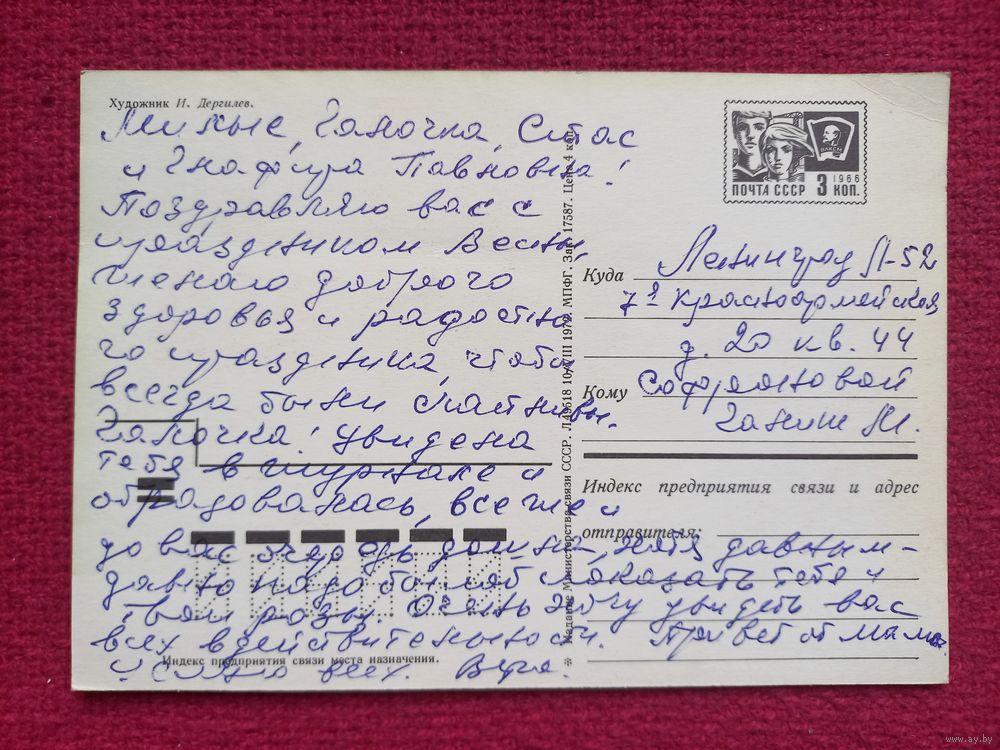 Художник И. Дергилев.
Милые, Галочка, Стас
и Глафира Павловна!
Поздравляю вас с
праздником Весны,
желаю доброго
здоровья и радостно
го праздника, чтобы
всегда были счастливы.
Галочка! Увидела
тебя в журнале и
обрадовалась, все же и
до вас очередь дошла, хотя давным-
давно надо было показать тебя и
твои розы. Очень хочу увидеть вас
всех в действительности. Привет от мамы
и всех. Вера.
ПОЧТА СССР 3 КОП.
1966
ВЛКСМ
Куда Ленинград Л-52
7я Красноармейская
д. 20 кв. 44
Кому Софроновой
Галине М.
Индекс предприятия связи и адрес
отправителя:
Индекс предприятия связи места назначения.
Издание Министерства связи СССР. 10/VIII 1972. МПФГ. Зак. 17587. Цена 4 коп.
www.ay.by